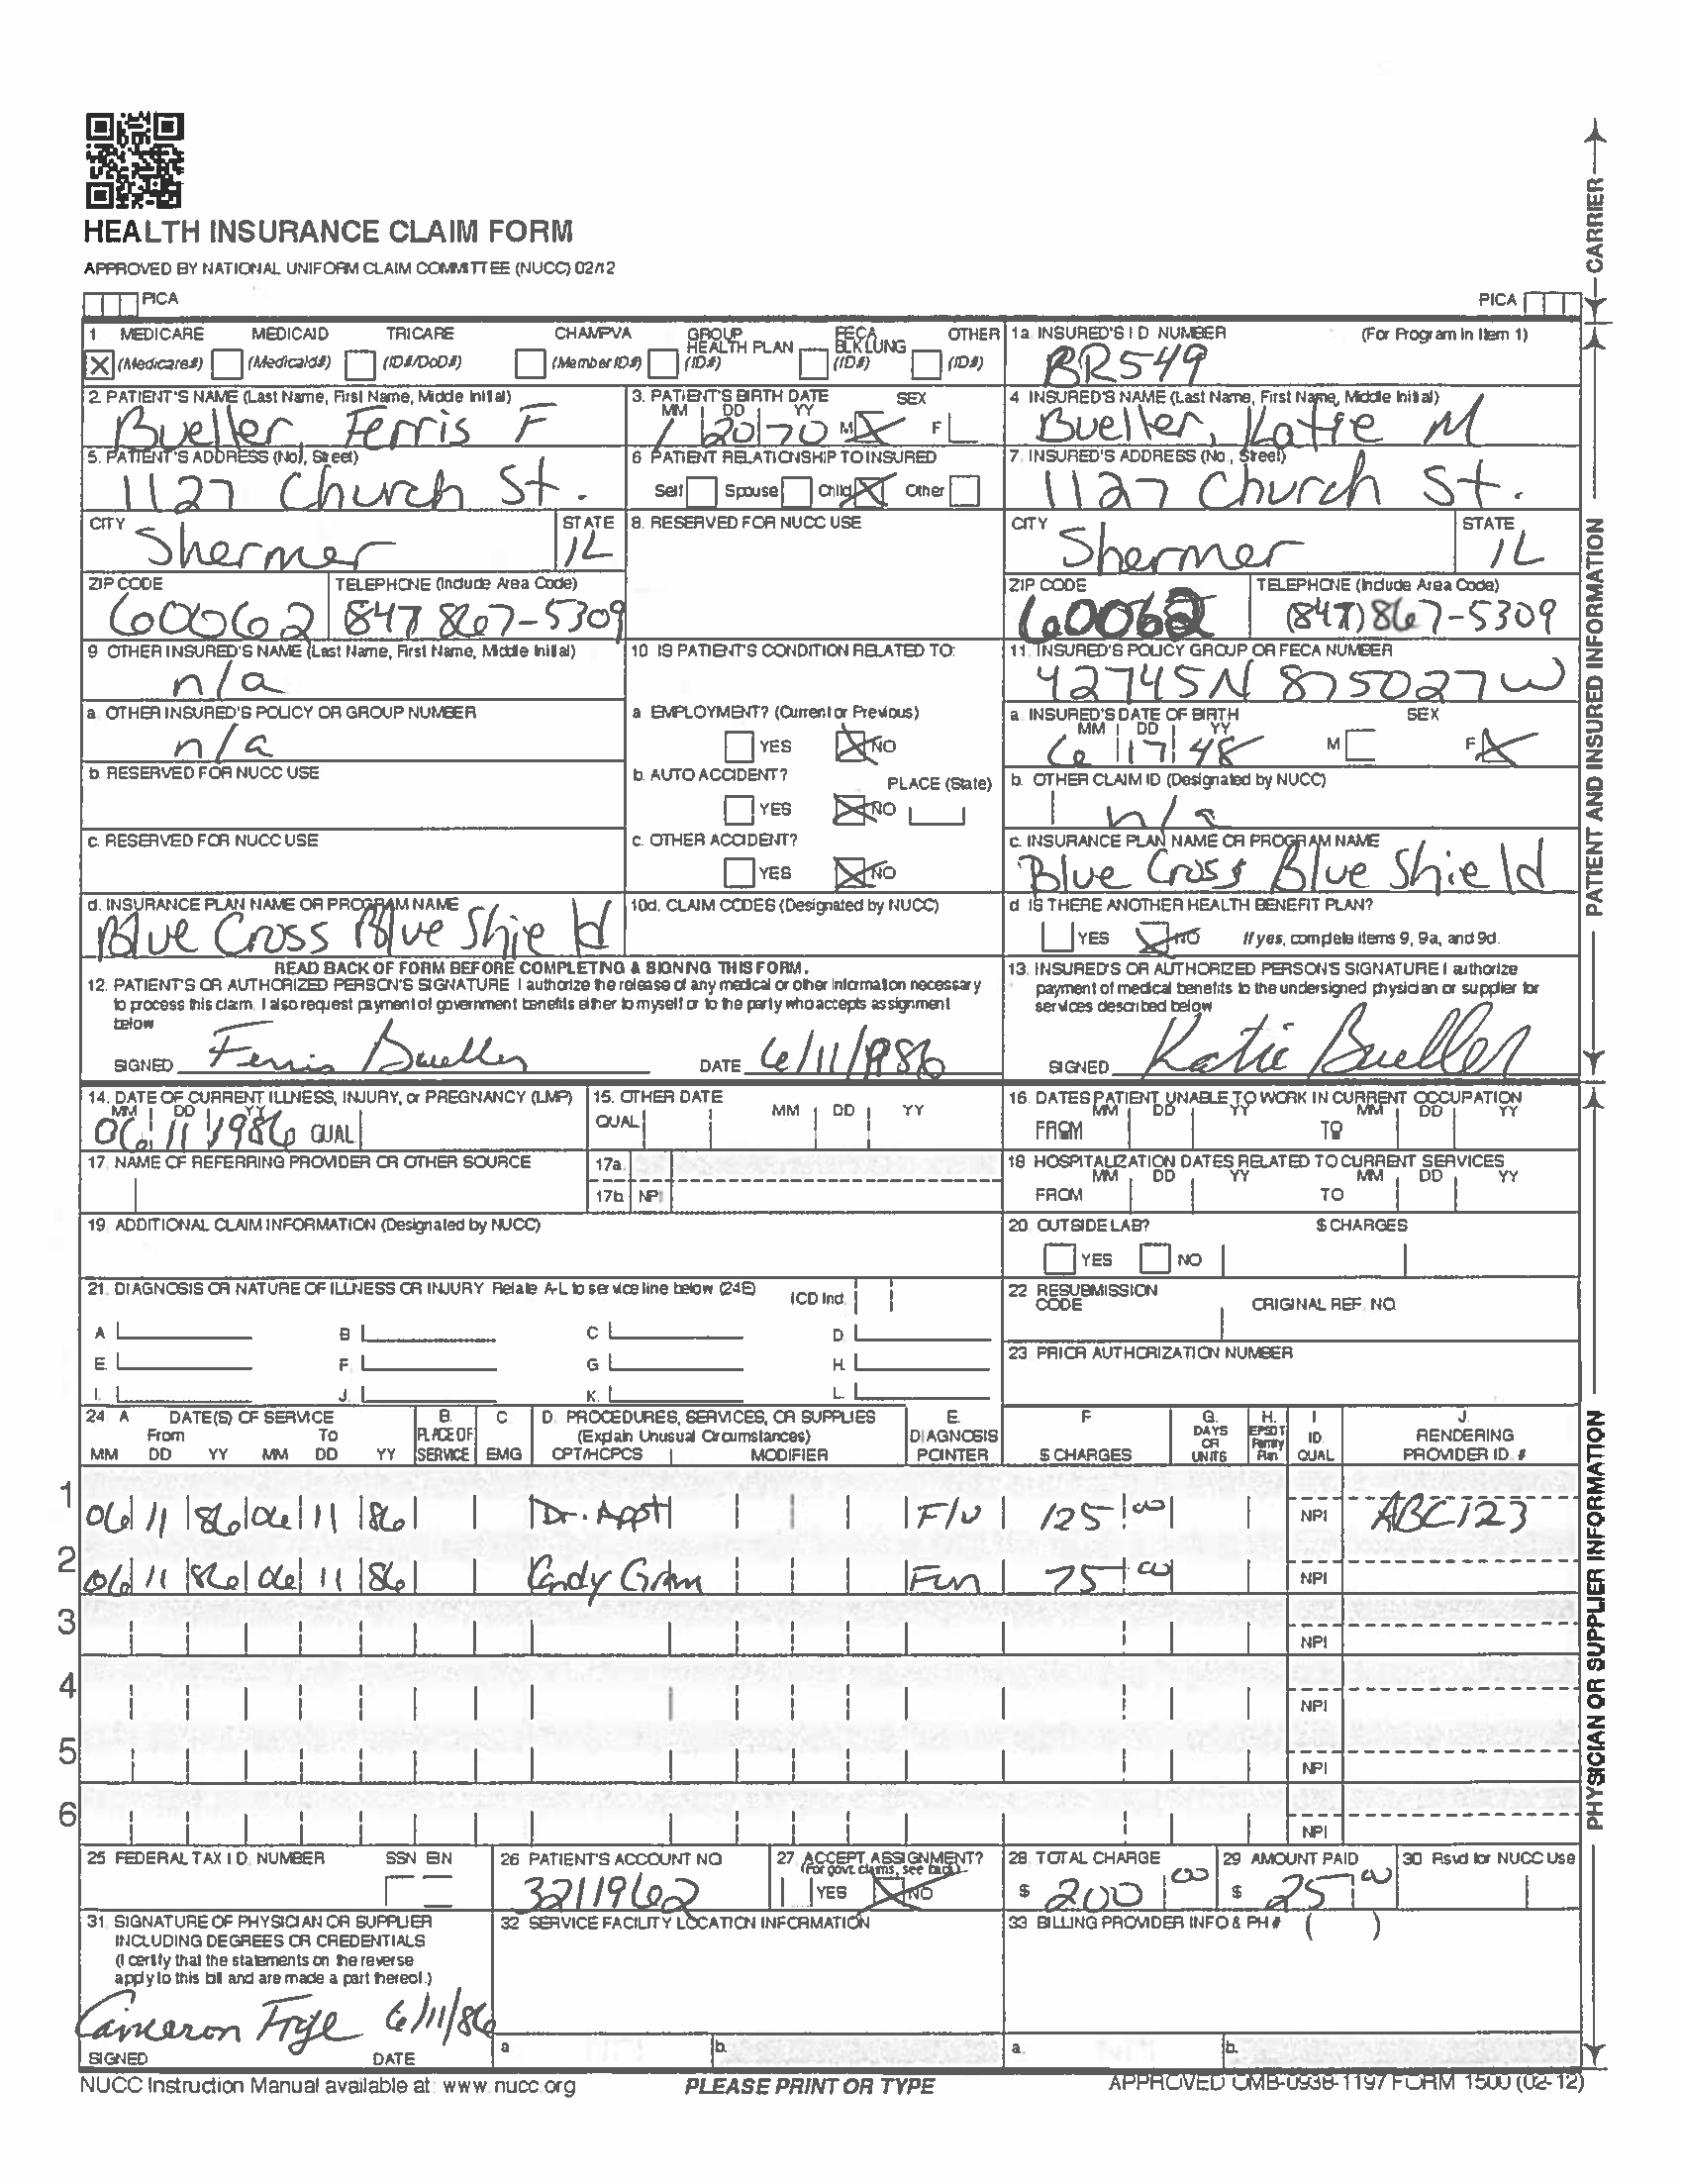 HEALTH INSURANCE CLAIM FORM
APPROVED BY NATIONAL UNIFORM CLAIM COMMITTEE (NUCC) 02/12
PICA
PICA
CARRIER
1 MEDICARE MEDICAID TRICARE CHAMPVA GROUP HEALTH PLAN FECA BLK LUNG OTHER
X (Medicare#) (Medicaid#) (ID#/DoD#) (Member ID#) (ID#) (ID#) (ID#)
1a. INSURED'S I D NUMBER (For Program in Item 1)
BR549
2. PATIENT'S NAME (Last Name, First Name, Middle Initial)
Bueller, Ferris F
3. PATIENT'S BIRTH DATE SEX
MM DD YY
1 20 70 M X F
4 INSURED'S NAME (Last Name, First Name, Middle Initial)
Bueller, Katie M
5. PATIENT'S ADDRESS (No., Street)
1127 Church St.
6 PATIENT RELATIONSHIP TO INSURED
Self Spouse Child X Other
7. INSURED'S ADDRESS (No., Street)
1127 Church St.
CITY STATE
Shermer IL
8. RESERVED FOR NUCC USE
CITY STATE
Shermer IL
ZIP CODE TELEPHONE (Include Area Code)
60062 847 867-5309
ZIP CODE TELEPHONE (Include Area Code)
60062 (847) 867-5309
9 OTHER INSURED'S NAME (Last Name, First Name, Middle Initial)
n/a
10 IS PATIENT'S CONDITION RELATED TO:
11. INSURED'S POLICY GROUP OR FECA NUMBER
42745N 875027W
a. OTHER INSURED'S POLICY OR GROUP NUMBER
n/a
a EMPLOYMENT? (Current or Previous)
YES X NO
a. INSURED'S DATE OF BIRTH SEX
MM DD YY
6 17 48 M F X
b. RESERVED FOR NUCC USE
b. AUTO ACCIDENT? PLACE (State)
YES X NO
b. OTHER CLAIM ID (Designated by NUCC)
n/a
c. RESERVED FOR NUCC USE
c. OTHER ACCIDENT?
YES X NO
c. INSURANCE PLAN NAME OR PROGRAM NAME
Blue Cross Blue Shield
d. INSURANCE PLAN NAME OR PROGRAM NAME
Blue Cross Blue Shield
10d. CLAIM CODES (Designated by NUCC)
d IS THERE ANOTHER HEALTH BENEFIT PLAN?
YES X NO If yes, complete items 9, 9a, and 9d.
READ BACK OF FORM BEFORE COMPLETING & SIGNING THIS FORM.
12. PATIENT'S OR AUTHORIZED PERSON'S SIGNATURE I authorize the release of any medical or other information necessary
to process this claim. I also request payment of government benefits either to myself or to the party who accepts assignment
below
SIGNED Ferris Bueller DATE 6/11/1986
13. INSURED'S OR AUTHORIZED PERSON'S SIGNATURE I authorize
payment of medical benefits to the undersigned physician or supplier for
services described below
SIGNED Katie Bueller
PATIENT AND INSURED INFORMATION
14. DATE OF CURRENT ILLNESS, INJURY, or PREGNANCY (LMP)
MM DD YY
06 11 1986 QUAL
15. OTHER DATE
QUAL MM DD YY
16. DATES PATIENT UNABLE TO WORK IN CURRENT OCCUPATION
MM DD YY MM DD YY
FROM TO
17. NAME OF REFERRING PROVIDER OR OTHER SOURCE
17a.
17b NPI
18 HOSPITALIZATION DATES RELATED TO CURRENT SERVICES
MM DD YY MM DD YY
FROM TO
19. ADDITIONAL CLAIM INFORMATION (Designated by NUCC)
20. OUTSIDE LAB? $ CHARGES
YES NO
21. DIAGNOSIS OR NATURE OF ILLNESS OR INJURY Relate A-L to service line below (24E) ICD Ind.
A B C D.
E. F. G H.
I. J. K. L.
22 RESUBMISSION CODE ORIGINAL REF. NO.
23. PRIOR AUTHORIZATION NUMBER
24. A DATE(S) OF SERVICE B. C. D. PROCEDURES, SERVICES, OR SUPPLIES E. F G. H. I J.
From To PLACE OF (Explain Unusual Circumstances) DIAGNOSIS DAYS OR EPSDT Family ID. RENDERING
MM DD YY MM DD YY SERVICE EMG CPT/HCPCS MODIFIER POINTER $ CHARGES UNITS Plan QUAL PROVIDER ID. #
1 06 11 86 06 11 86 Dr. Appt F/U 125 00 NPI ABC123
2 06 11 86 06 11 86 Candy Gram Fun 75 00 NPI
3 NPI
4 NPI
5 NPI
6 NPI
25 FEDERAL TAX I.D. NUMBER SSN EIN
26 PATIENT'S ACCOUNT NO
3211962
27 ACCEPT ASSIGNMENT?
(For govt. claims, see back)
YES X NO
28. TOTAL CHARGE
$ 200 00
29 AMOUNT PAID
$ 25 00
30 Rsvd for NUCC Use
31. SIGNATURE OF PHYSICIAN OR SUPPLIER
INCLUDING DEGREES OR CREDENTIALS
(I certify that the statements on the reverse
apply to this bill and are made a part thereof.)
Cameron Frye 6/11/86
SIGNED DATE
32 SERVICE FACILITY LOCATION INFORMATION
a b.
33 BILLING PROVIDER INFO & PH # ( )
a. b.
PHYSICIAN OR SUPPLIER INFORMATION
NUCC Instruction Manual available at: www.nucc.org
PLEASE PRINT OR TYPE
APPROVED OMB-0938-1197 FORM 1500 (02-12)